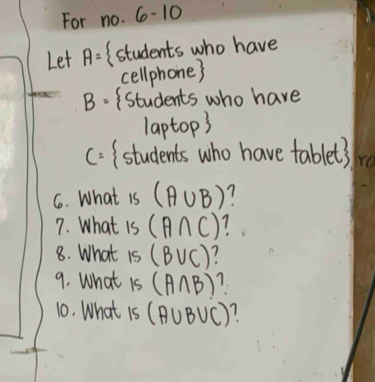 For no. 6-10
Let A={students who have
cellphone}
B = {Students who have
laptop}
C= {students who have tablet}
6. What is (A∪B)?
7. What is (A∩C)?
8. What is (B∪C)?
9. What is (A∩B)?
10. What is (A∪B∪C)?